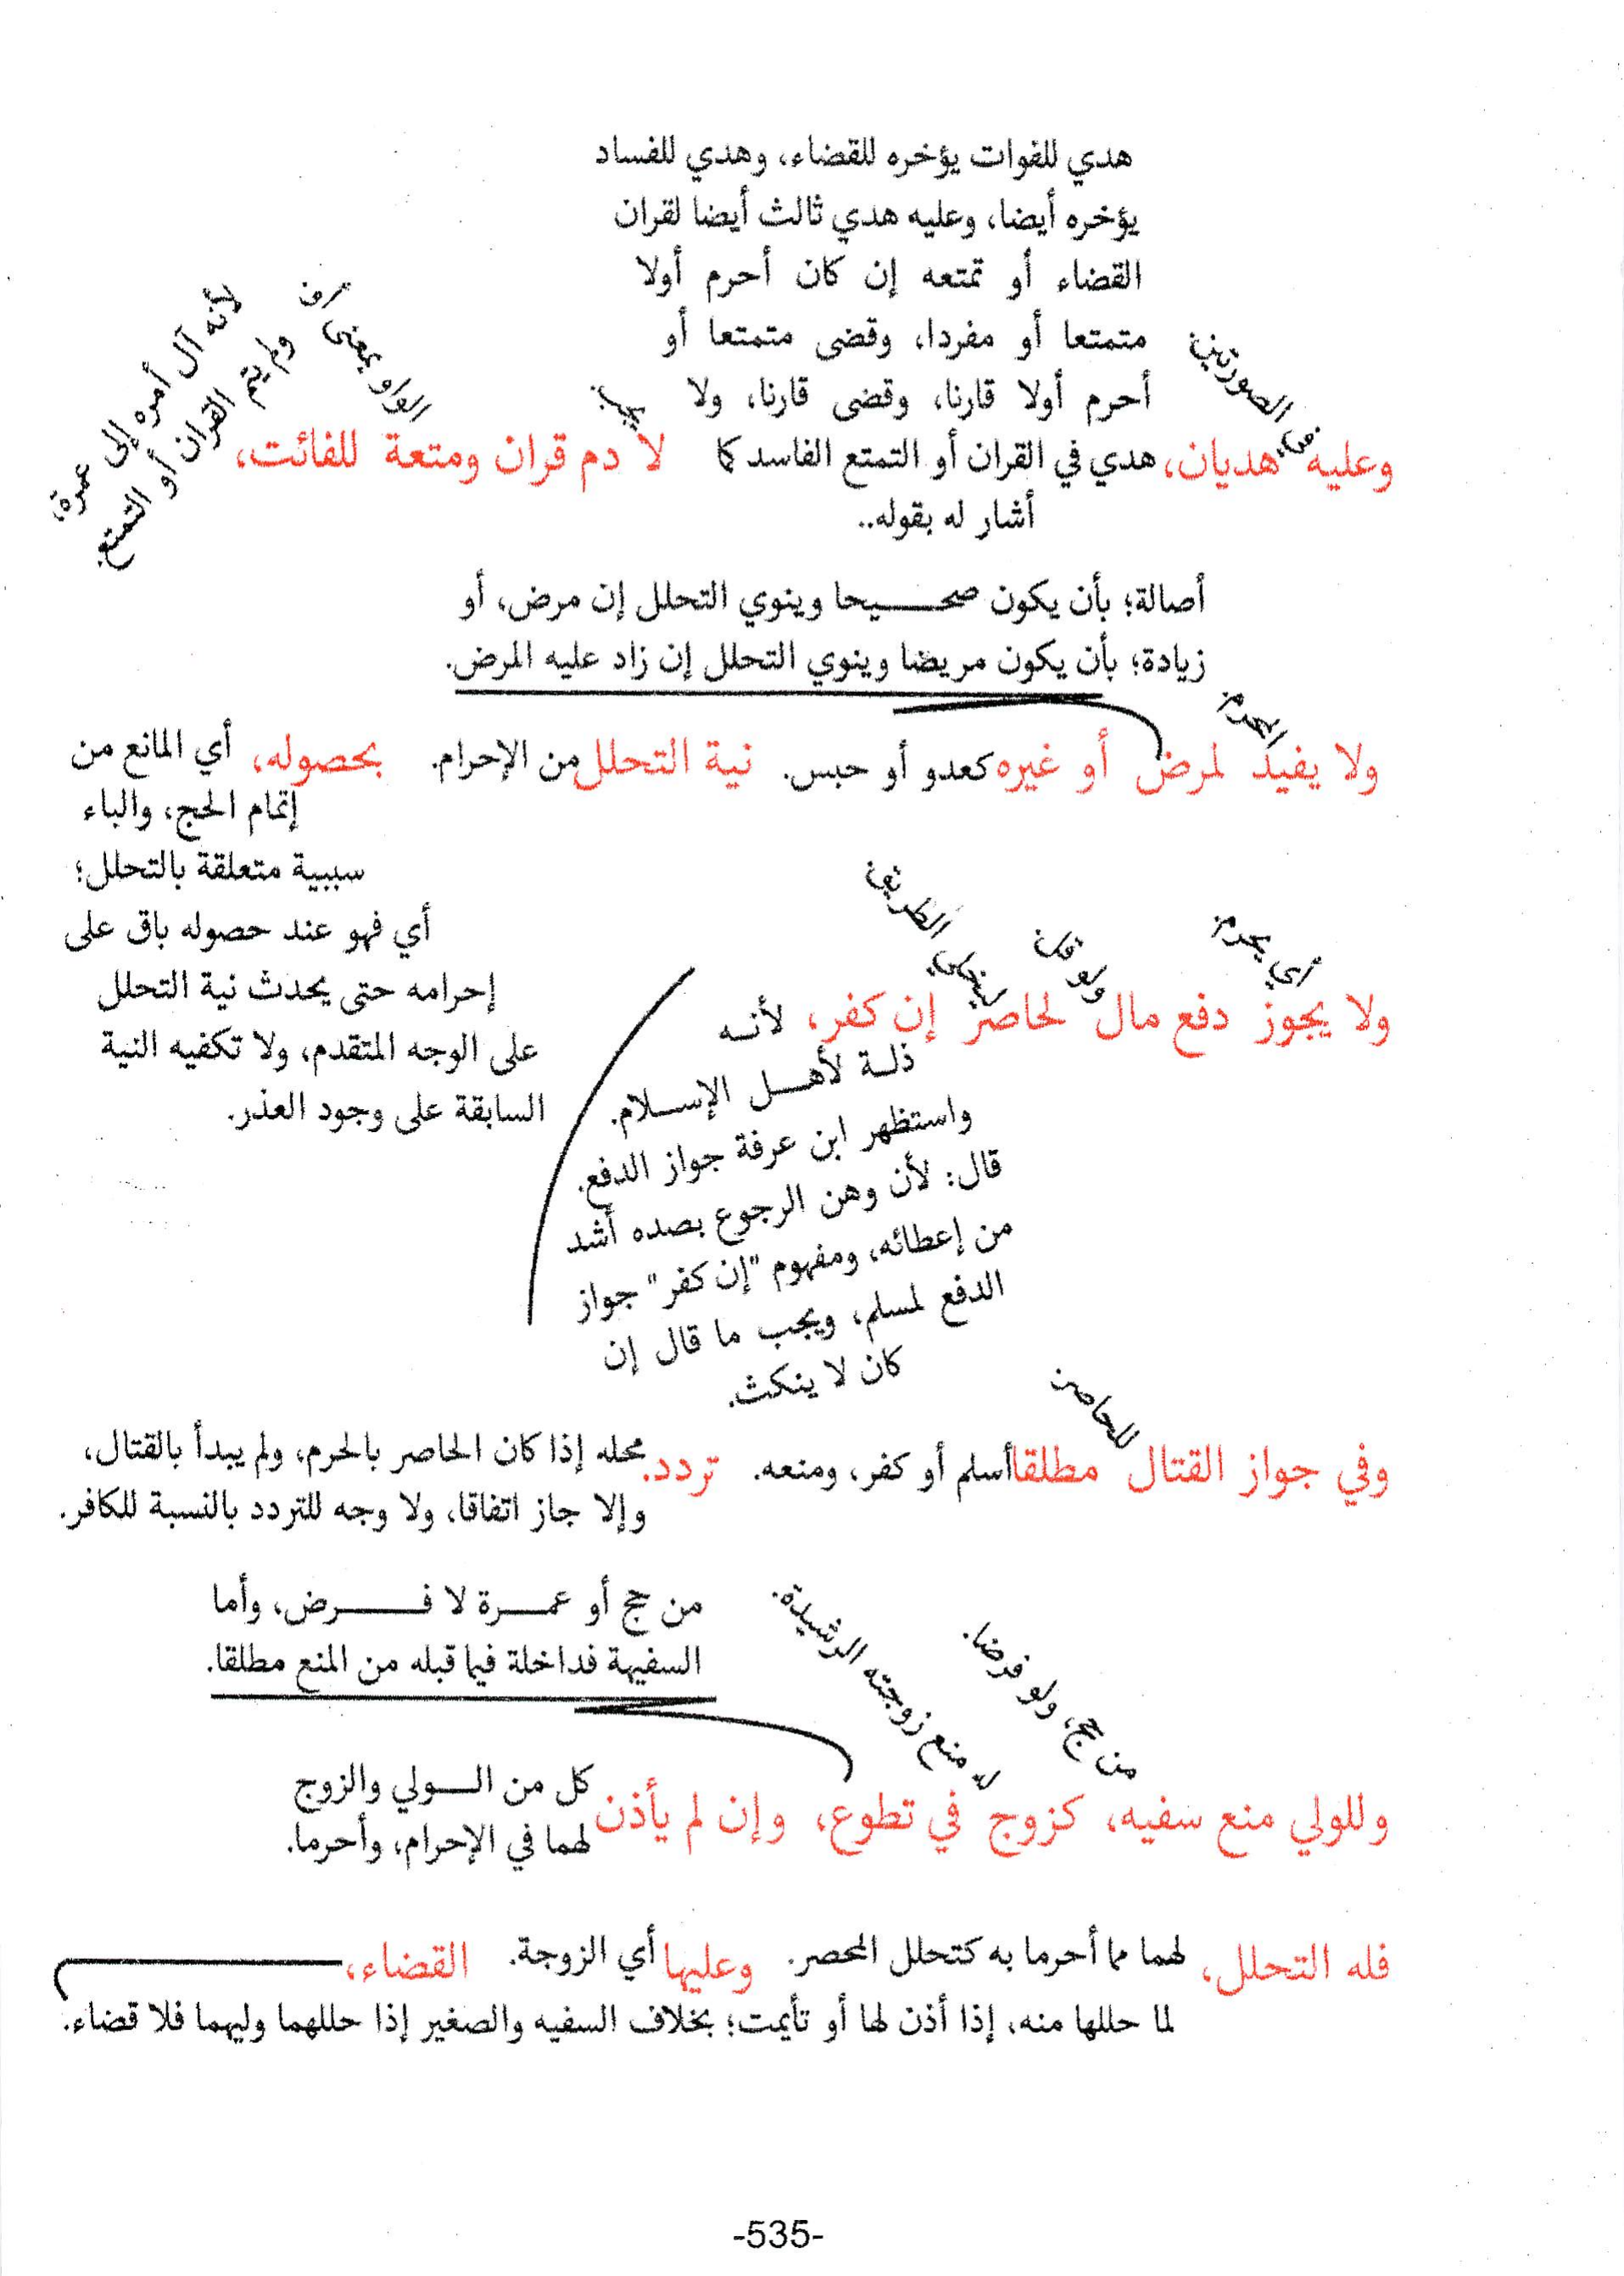 وعليه
في الصورتين
هديان،
هدي للفوات يؤخره للقضاء، وهدي للفساد
يؤخره أيضا، وعليه هدي ثالث أيضا لقران
القضاء أو تمتعه إن كان أحرم أولا
متمتعا أو مفردا، وقضى متمتعا أو
أحرم أولا قارنا، وقضى قارنا، ولا
هدي في القران أو التمتع الفاسد كما
أشار له بقوله..
لا دم قران ومتعة للفائت،
الواو بمعنى أو
لأنه آل أمره إلى عمرة،
ولم يتم القران أو التمتع.
ولا يفيد
المحرم.
لمرض
أصالة؛ بأن يكون صحيحا وينوي التحلل إن مرض، أو
زيادة؛ بأن يكون مريضا وينوي التحلل إن زاد عليه المرض.
أو غيره كعدو أو حبس. نية التحلل من الإحرام. بحصوله، أي المانع من
إتمام الحج، والباء
سببية متعلقة بالتحلل؛
أي فهو عند حصوله باق على
إحرامه حتى يحدث نية التحلل
على الوجه المتقدم، ولا تكفيه النية
السابقة على وجود العذر.
ولا يجوز
أي يحرم.
دفع مال
ولو قل.
لحاصر
ليخلي الطريق.
إن كفر، لأنه
ذلة لأهل الإسلام.
واستظهر ابن عرفة جواز الدفع.
قال: لأن وهن الرجوع بصده أشد
من إعطائه، ومفهوم "إن كفر" جواز
الدفع لمسلم، ويجب ما قال إن
كان لا ينكث.
وفي جواز القتال
للحاصر.
مطلقا أسلم أو كفر، ومنعه. تردد. محله إذا كان الحاصر بالحرم، ولم يبدأ بالقتال،
وإلا جاز اتفاقا، ولا وجه للتردد بالنسبة للكافر.
وللولي منع سفيه،
من حج، ولو فرضا.
كزوج
له منع زوجته الرشيدة.
في تطوع،
من حج أو عمرة لا فرض، وأما
السفيهة فداخلة فيما قبله من المنع مطلقا.
وإن لم يأذن
كل من الولي والزوج
لهما في الإحرام، وأحرما.
فله التحلل، لهما مما أحرما به كتحلل المحصر. وعليها أي الزوجة. القضاء،
لما حللها منه، إذا أذن لها أو تأيمت؛ بخلاف السفيه والصغير إذا حللهما وليهما فلا قضاء.
-535-